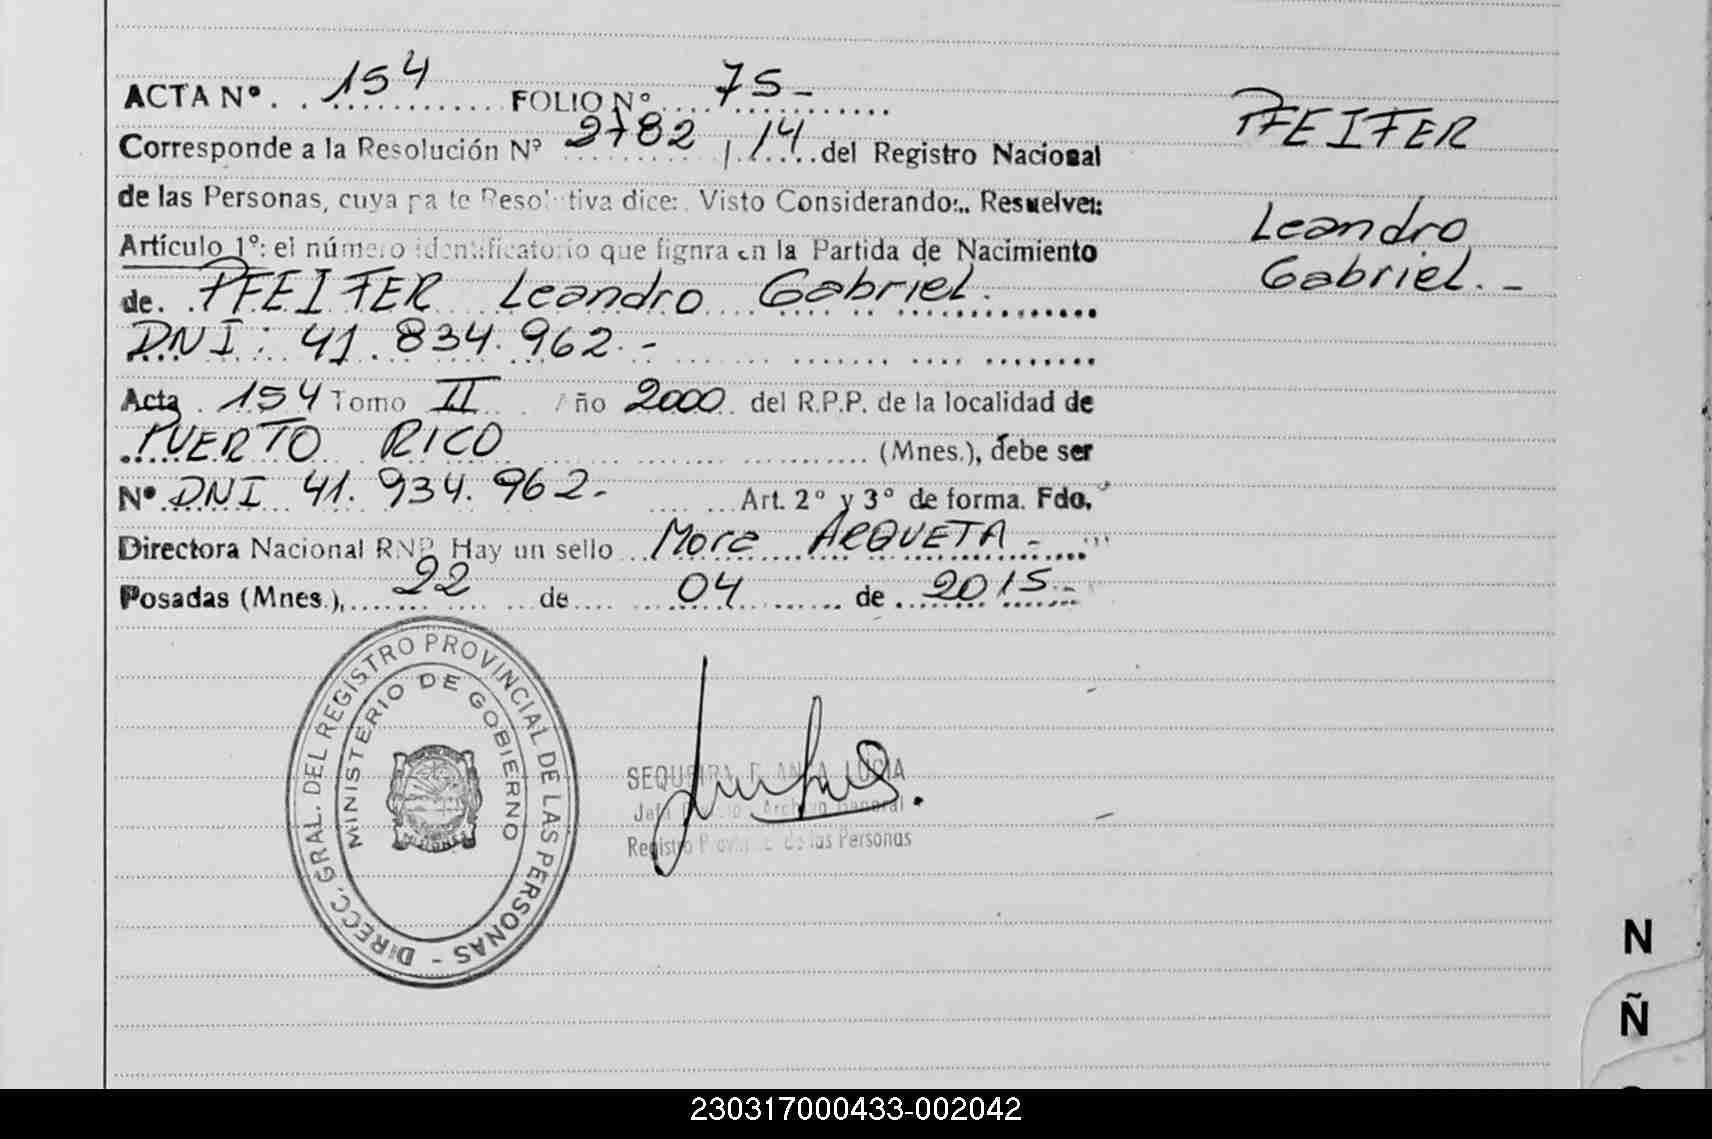 ACTA Nº. . 154 FOLIO Nº 75-
Corresponde a la Resolución Nº 2782 / 14 del Registro Nacional
de las Personas, cuya parte Resolutiva dice: Visto Considerando:.. Resuelve:
Artículo 1º: el número identificatorio que fignra en la Partida de Nacimiento
de. PFEIFER Leandro Gabriel.
DNI: 41.834.962.-
Acta 154 Tomo II Año 2000 del R.P.P. de la localidad de
PUERTO RICO (Mnes.), debe ser
Nº DNI 41.934.962.- Art. 2º y 3º de forma. Fdo.
Directora Nacional RNP. Hay un sello Mora ARQUETA -
Posadas (Mnes.), 22 de 04 de 2015.-
PFEIFER
Leandro
Gabriel.-
DIRECC. GRAL. DEL REGISTRO PROVINCIAL DE LAS PERSONAS -
MINISTERIO DE GOBIERNO
LUCIA
Archivo General
Registro de las Personas
N
Ñ
230317000433-002042